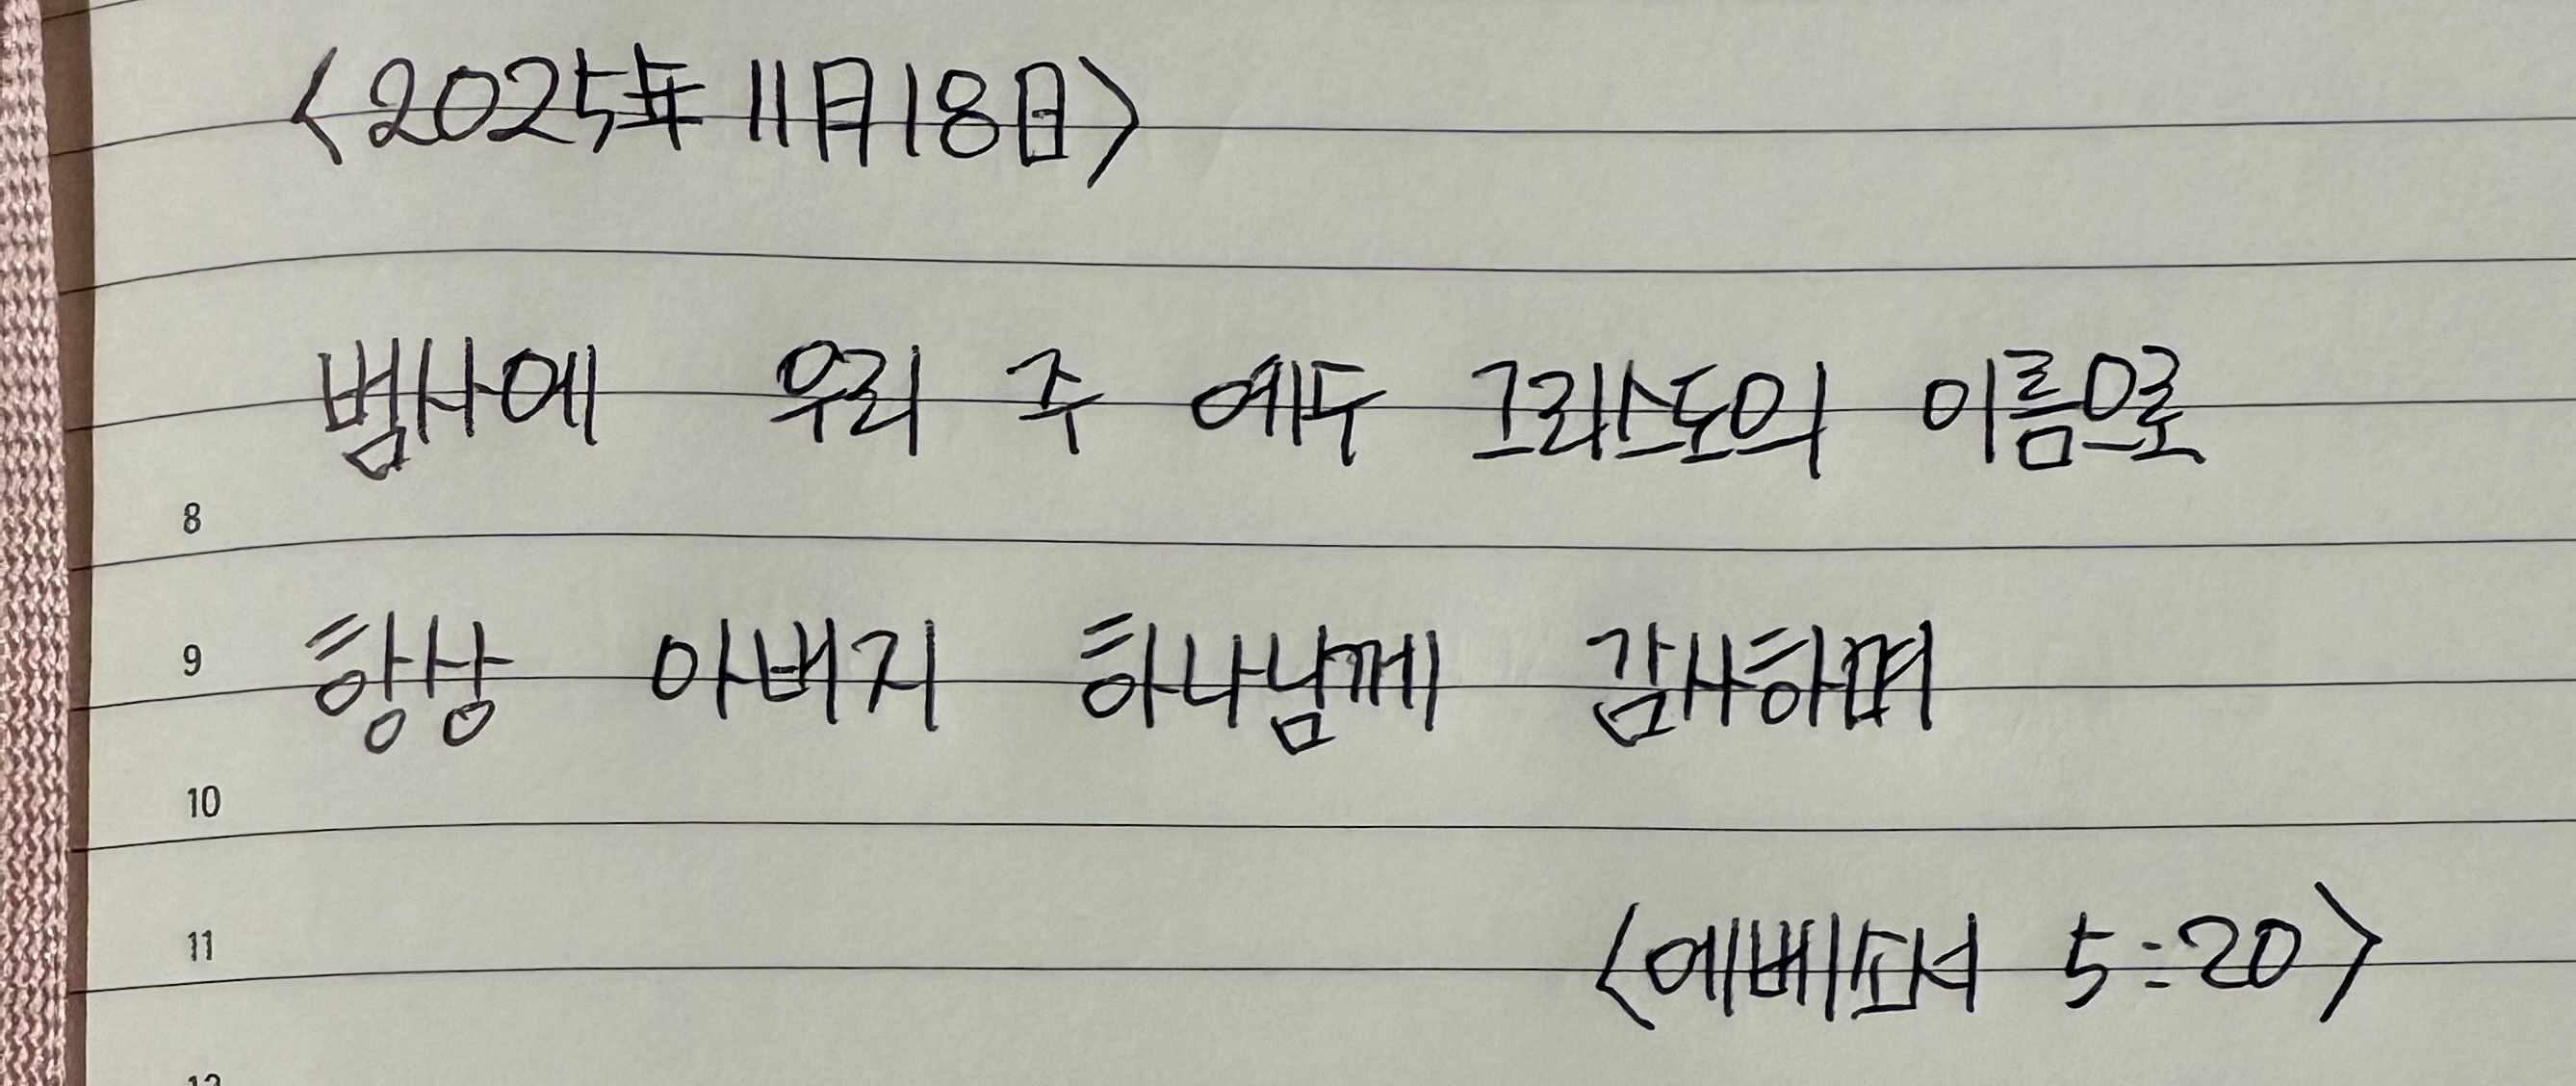 <2025年 11月 18日>
범사에 우리 주 예수 그리스도의 이름으로
8
9 항상 아버지 하나님께 감사하며
10
11 <에베소서 5:20>